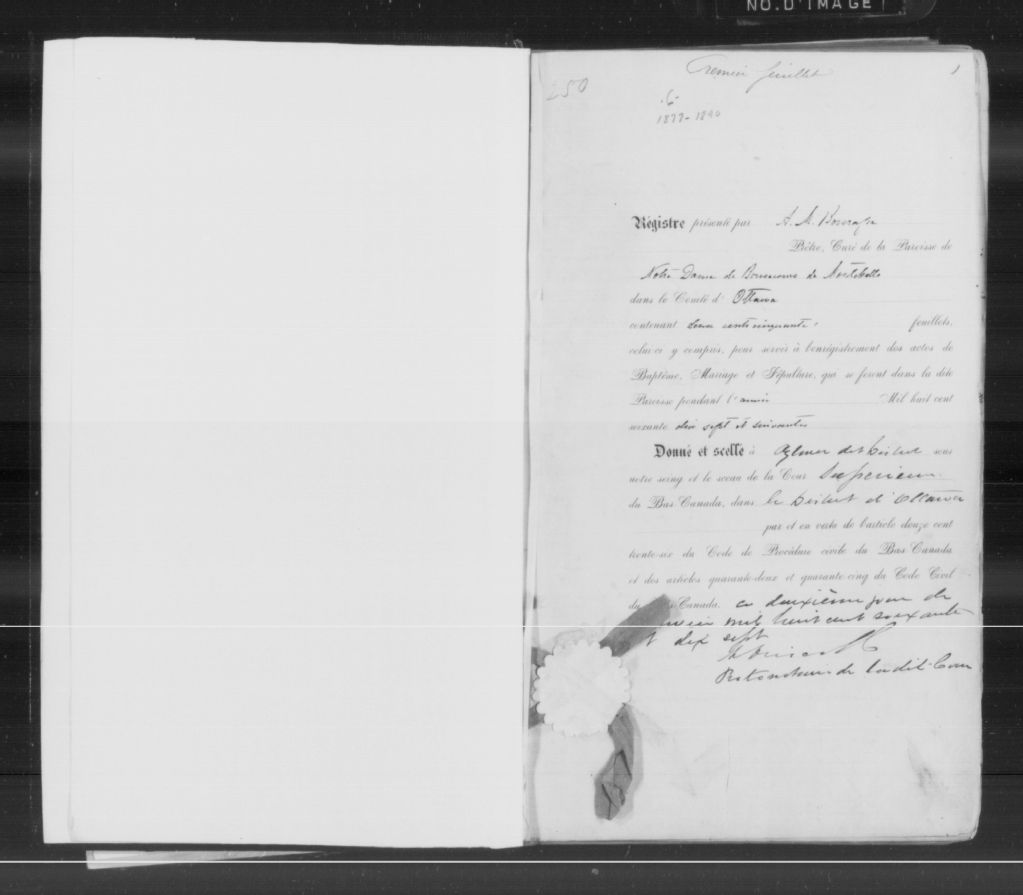 NO. D'IMAGE
Premier feuillet
1
250
6
1877-1890
Régistre présenté par A. M.
Prêtre, Curé de la Paroisse de
Notre Dame de Bonsecours de Montebello
dans le Comté d' Ottawa
contenant deux cent cinquante feuillets,
celui-ci y compris, pour servir à l'enrégistrement des actes de
Baptême, Mariage et Sépulture, qui se feront dans la dite
Paroisse pendant l' année Mil huit cent
soixante dix sept et suivantes
Donné et scellé à Aylmer dit District sous
notre seing et le sceau de la Cour Superieure
du Bas Canada, dans le District d'Ottawa
par et en vertu de l'article douze cent
trente-six du Code de Procédure civile du Bas Canada
et des articles quarante-deux et quarante-cinq du Code Civil
du Canada. ce deuxième jour de
mil huit cent soixante
et dix sept
Protonotaire de la dite Cour